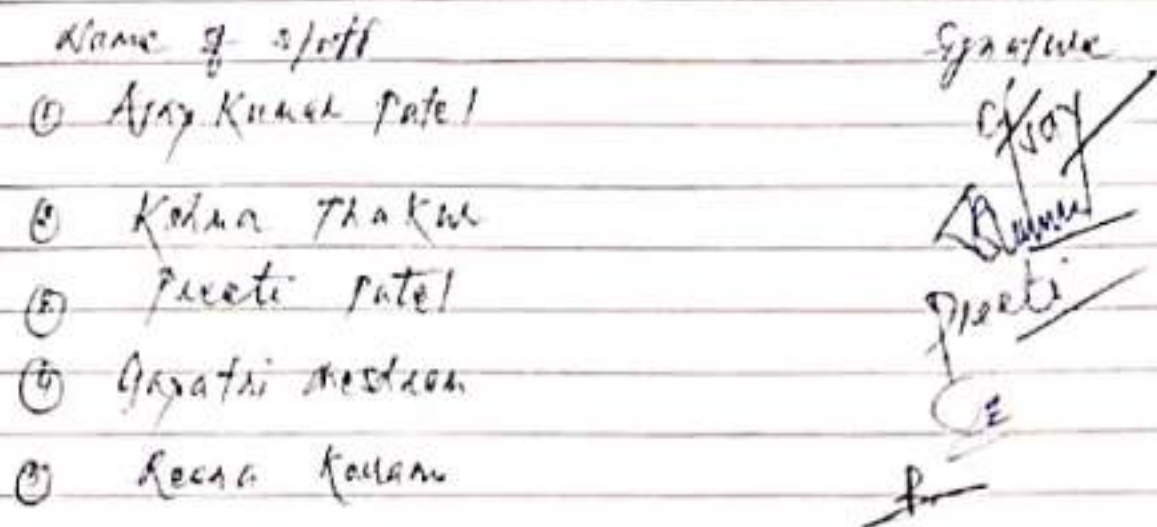 Name of staff Signature
① Ajay Kumar Patel Ajay
② Thakur
③ Preeti Patel Preeti
④ Gayatri Meshram
⑤ Reena